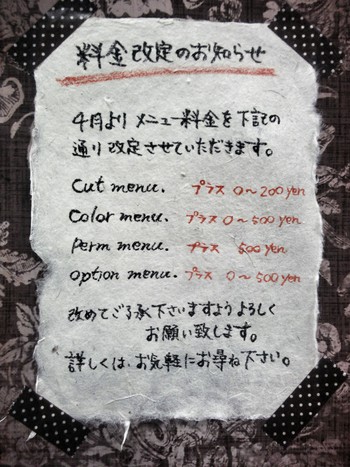 料金改定のお知らせ
4月より メニュー料金を下記の
通り改定させていただきます。
Cut menu. プラス 0〜200yen
Color menu. プラス 0〜500yen
Perm menu. プラス 500yen
option menu. プラス 0〜500yen
改めてご了承下さいますようよろしく
お願い致します。
詳しくは、お気軽にお尋ね下さい。